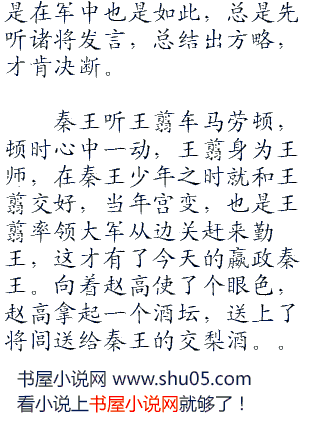 是在军中也是如此，总是先
听诸将发言，总结出方略，
才肯决断。
秦王听王翦车马劳顿，
顿时心中一动，王翦身为王
师，在秦王少年之时就和王
翦交好，当年宫变，也是王
翦率领大军从边关赶来勤
王，这才有了今天的嬴政秦
王。向着赵高使了个眼色，
赵高拿起一个酒坛，送上了
将闾送给秦王的交梨酒。。
书屋小说网 www.shu05.com
看小说上书屋小说网就够了！